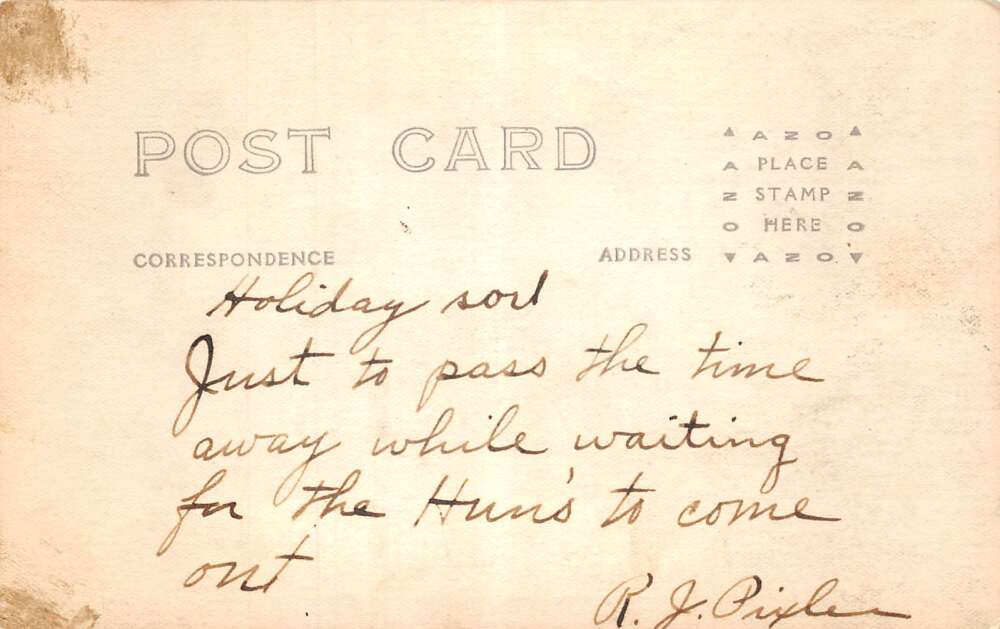 POST CARD
▲ A Z O ▲
A PLACE A
Z STAMP Z
O HERE O
▼ A Z O ▼
CORRESPONDENCE ADDRESS
Holiday
Just to pass the time
away while waiting
for the Hun's to come
out
R. J.